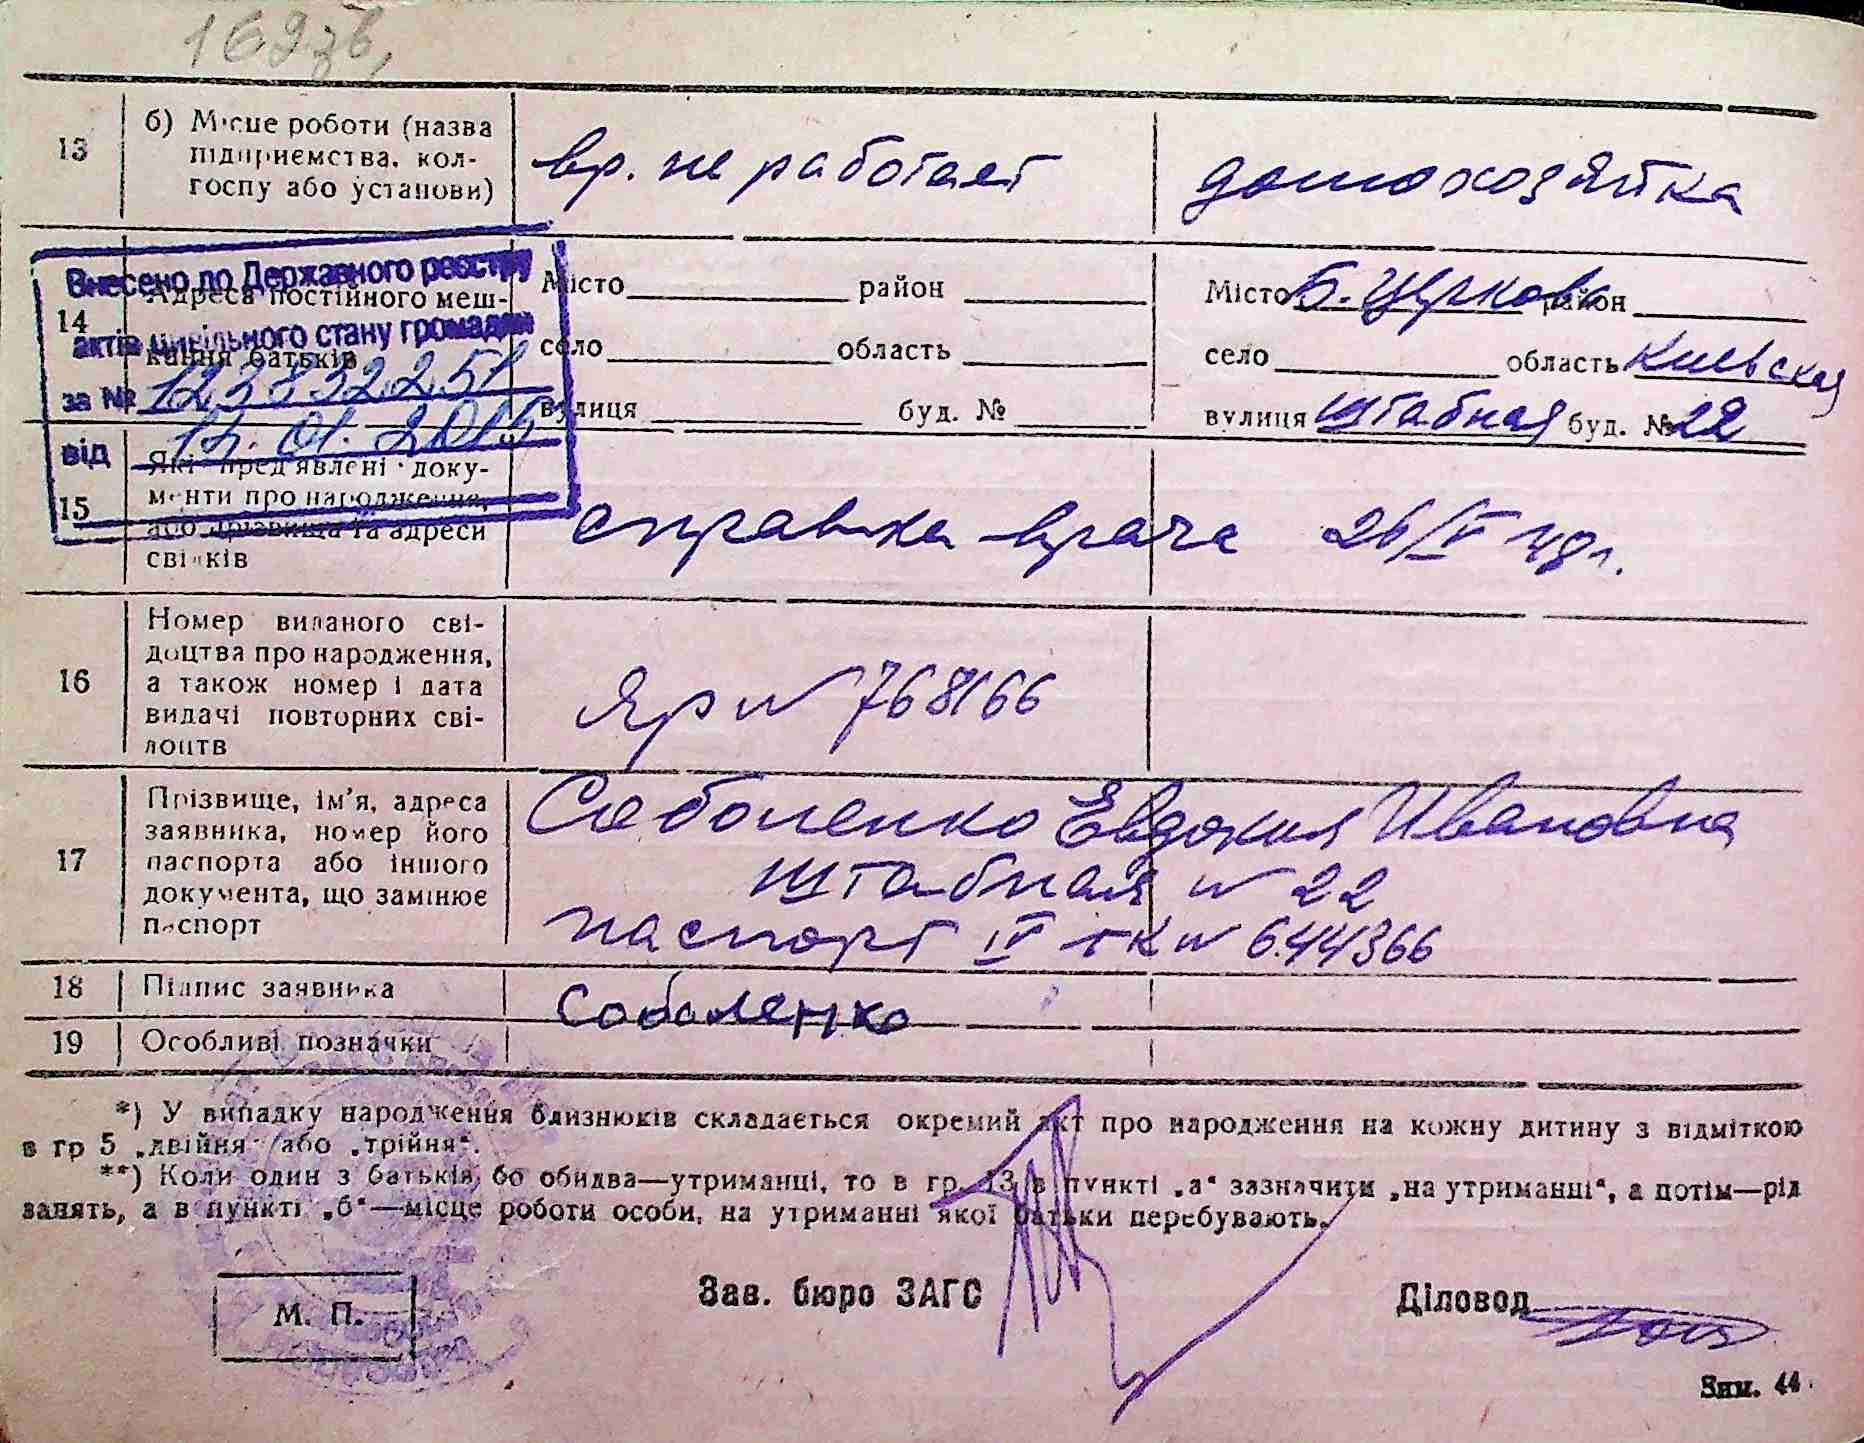 169зв,
13
б) Місце роботи (назва
підприємства, кол-
госпу або установи)
вр. не работает
домохозяйка
Внесено до Державного реєстру
актів цивільного стану громадян
за № 123832251
від 12.01.2015
14
Адреса постійного меш-
кання батьків
Місто район
село область
вулиця буд. №
Місто Б. Церковь район
село область Киевская
вулиця Штабная буд. № 22
15
Які пред'явлені доку-
менти про народження,
або прізвища та адреси
свідків
справка врача 26/IV 48г.
16
Номер виданого сві-
доцтва про народження,
а також номер і дата
видачі повторних сві-
доцтв
Яр № 768166
17
Прізвище, ім'я, адреса
заявника, номер його
паспорта або іншого
документа, що замінює
паспорт
Соболенко Евдокия Ивановна
Штабная № 22
паспорт IV тк № 644366
18
Підпис заявника
Соболенко
19
Особливі позначки
*) У випадку народження близнюків складається окремий акт про народження на кожну дитину з відміткою
в гр 5 „двійня“ або „трійня“.
**) Коли один з батьків бо обидва—утриманці, то в гр. 13 в пункті „а“ зазначити „на утриманні“, а потім—рід
занять, а в пункті „б“—місце роботи особи, на утриманні якої батьки перебувають.
М. П.
Зав. бюро ЗАГС
Діловод
Зим. 44